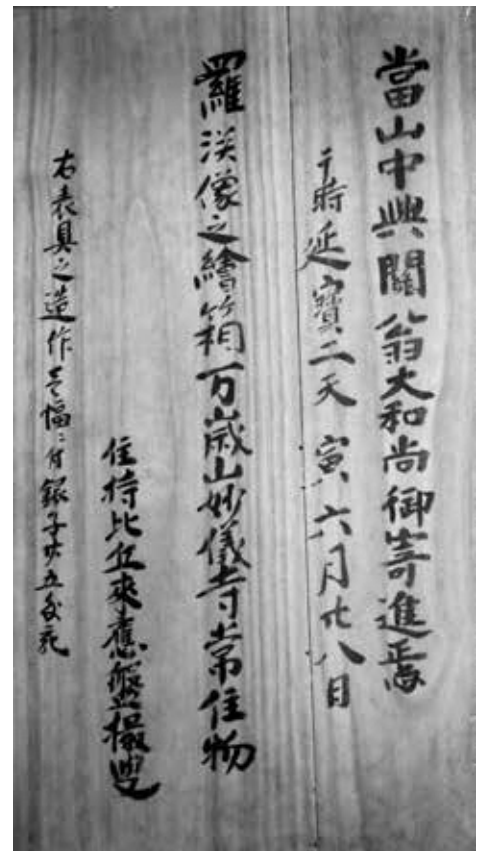 當山中興關翁大和尚御寄進焉
于時延寶二天寅六月廿八日
羅漢像之繪箱万歳山妙儀寺常住物
住持比丘來應盤
右表具之造作壱幅ニ付銀子廿五匁宛